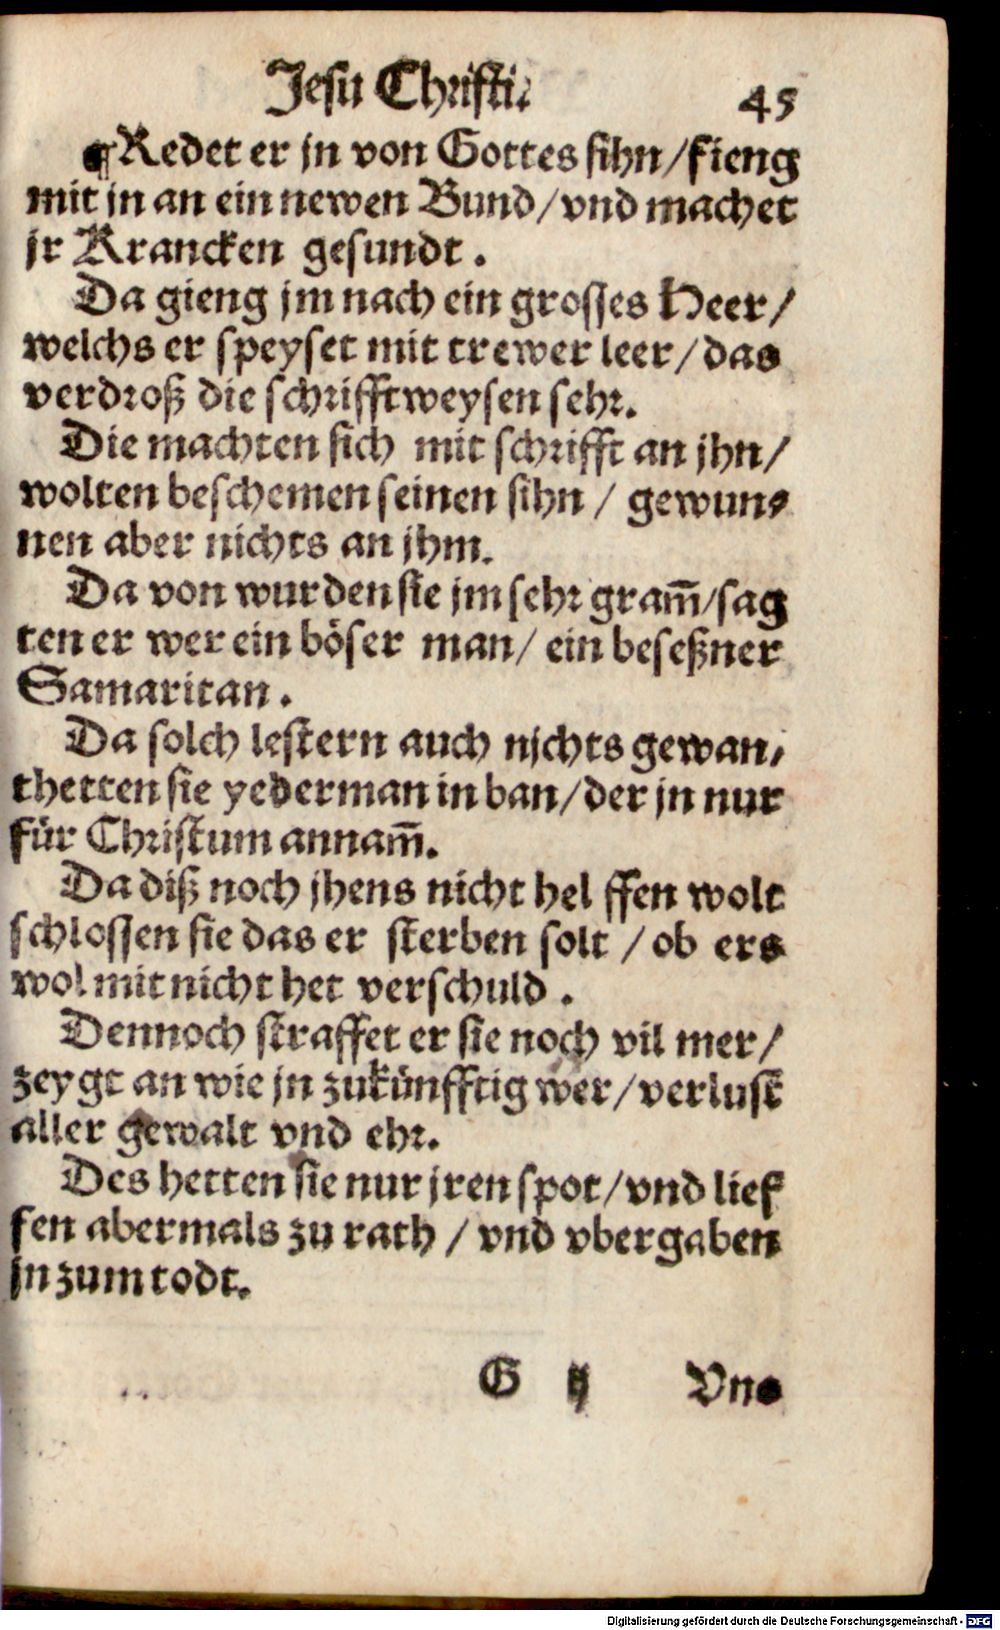 Jesu Christi.
45
¶Redet er jn von Gottes sihn/fieng
mit jn an ein newen Bund/vnd machet
jr Krancken gesundt.
Da gieng jm nach ein grosses Heer/
welchs er speyset mit trewer leer/das
verdroß die schrifftweysen sehr.
Die machten sich mit schrifft an jhn/
wolten beschemen seinen sihn / gewun⸗
nen aber nichts an jhm.
Da von wurden sie jm sehr gram̃/sag
ten er wer ein böser man/ ein beseßner
Samaritan.
Da solch lestern auch njchts gewan,
thetten sie yederman in ban/der jn nur
für Christum annam̃.
Da diß noch jhens nicht hel ffen wolt
schlossen sie das er sterben solt / ob ers
wol mit nicht het verschuld.
Dennoch straffet er sie noch vil mer/
zeygt an wie jn zukünfftig wer/verlust
aller gewalt vnd ehr.
Des hetten sie nur jren spot/vnd lief
fen abermals zu rath / vnd vbergaben
jn zum todt.
G ij Vns
Digitalisierung gefördert durch die Deutsche Forschungsgemeinschaft - DFG